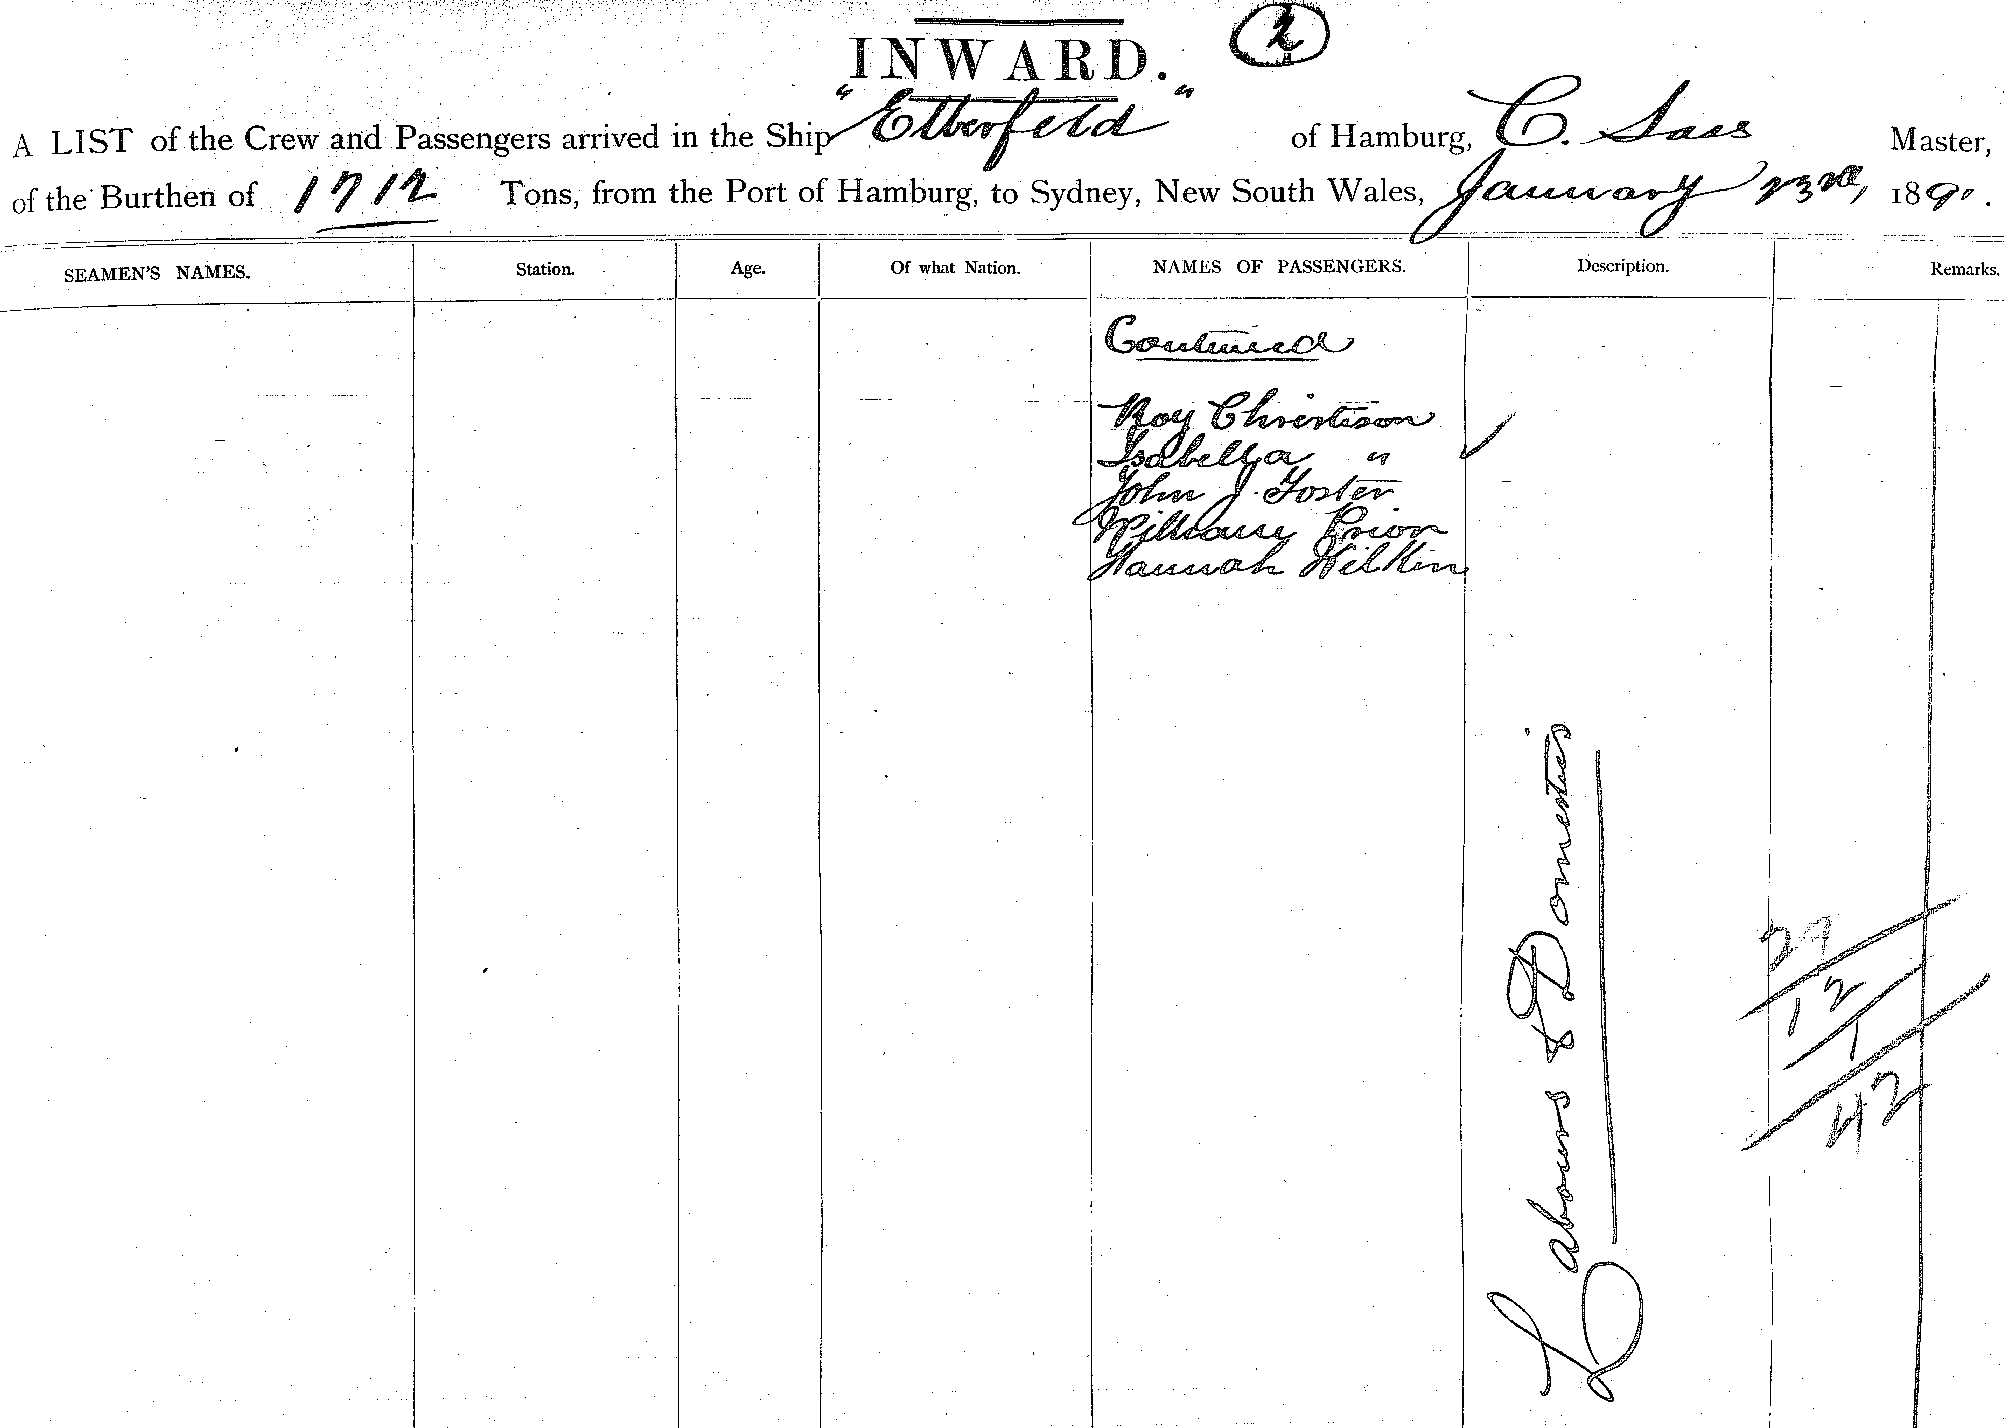 INWARD.
2
A LIST of the Crew and Passengers arrived in the Ship "Elberfeld" of Hamburg, C. Sass Master,
of the Burthen of 1712 Tons, from the Port of Hamburg, to Sydney, New South Wales, January 23rd, 1890.
SEAMEN'S NAMES. Station. Age. Of what Nation. NAMES OF PASSENGERS. Description. Remarks.
Continued
Roy Christison
Isabella "
John J. Foster
William Prior
Hannah Wilkin
Labours & Domestics
12
1
42